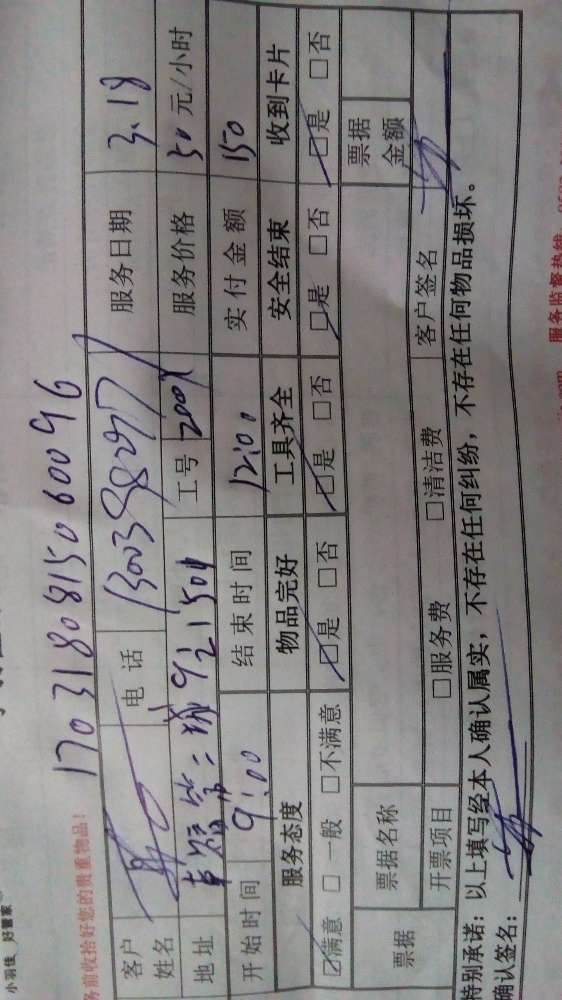 小羽佳 好管家
务前收拾好您的贵重物品！
1703180815060096
客户姓名 电话 13003982977 服务日期 3.18
地址 9之1504 工号 服务价格 50元/小时
开始时间 9:00 结束时间 12:00 实付金额 150
服务态度 物品完好 工具齐全 安全结束 收到卡片
☑满意 □一般 □不满意 ☑是 □否 ☑是 □否 ☑是 □否 ☑是 □否
票据 票据名称 票据金额
开票项目 □服务费 □清洁费 客户签名
特别承诺：以上填写经本人确认属实，不存在任何纠纷，不存在任何物品损坏。
确认签名：
服务监督热线